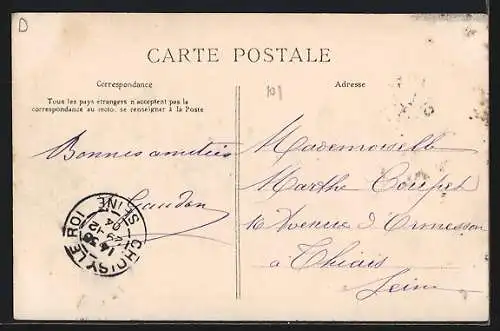 D
CARTE POSTALE
Correspondance
Tous les pays étrangers n'acceptent pas la
correspondance au moto. se renseigner à la Poste
Bonnes amitiés
Gaudon
CHOISY-LE-ROI
SEINE
14 30
29 -12
04
Adresse
101
Mademoiselle
Marthe Coupet
16 Avenue d'Ormesson
à Thiais
Seine